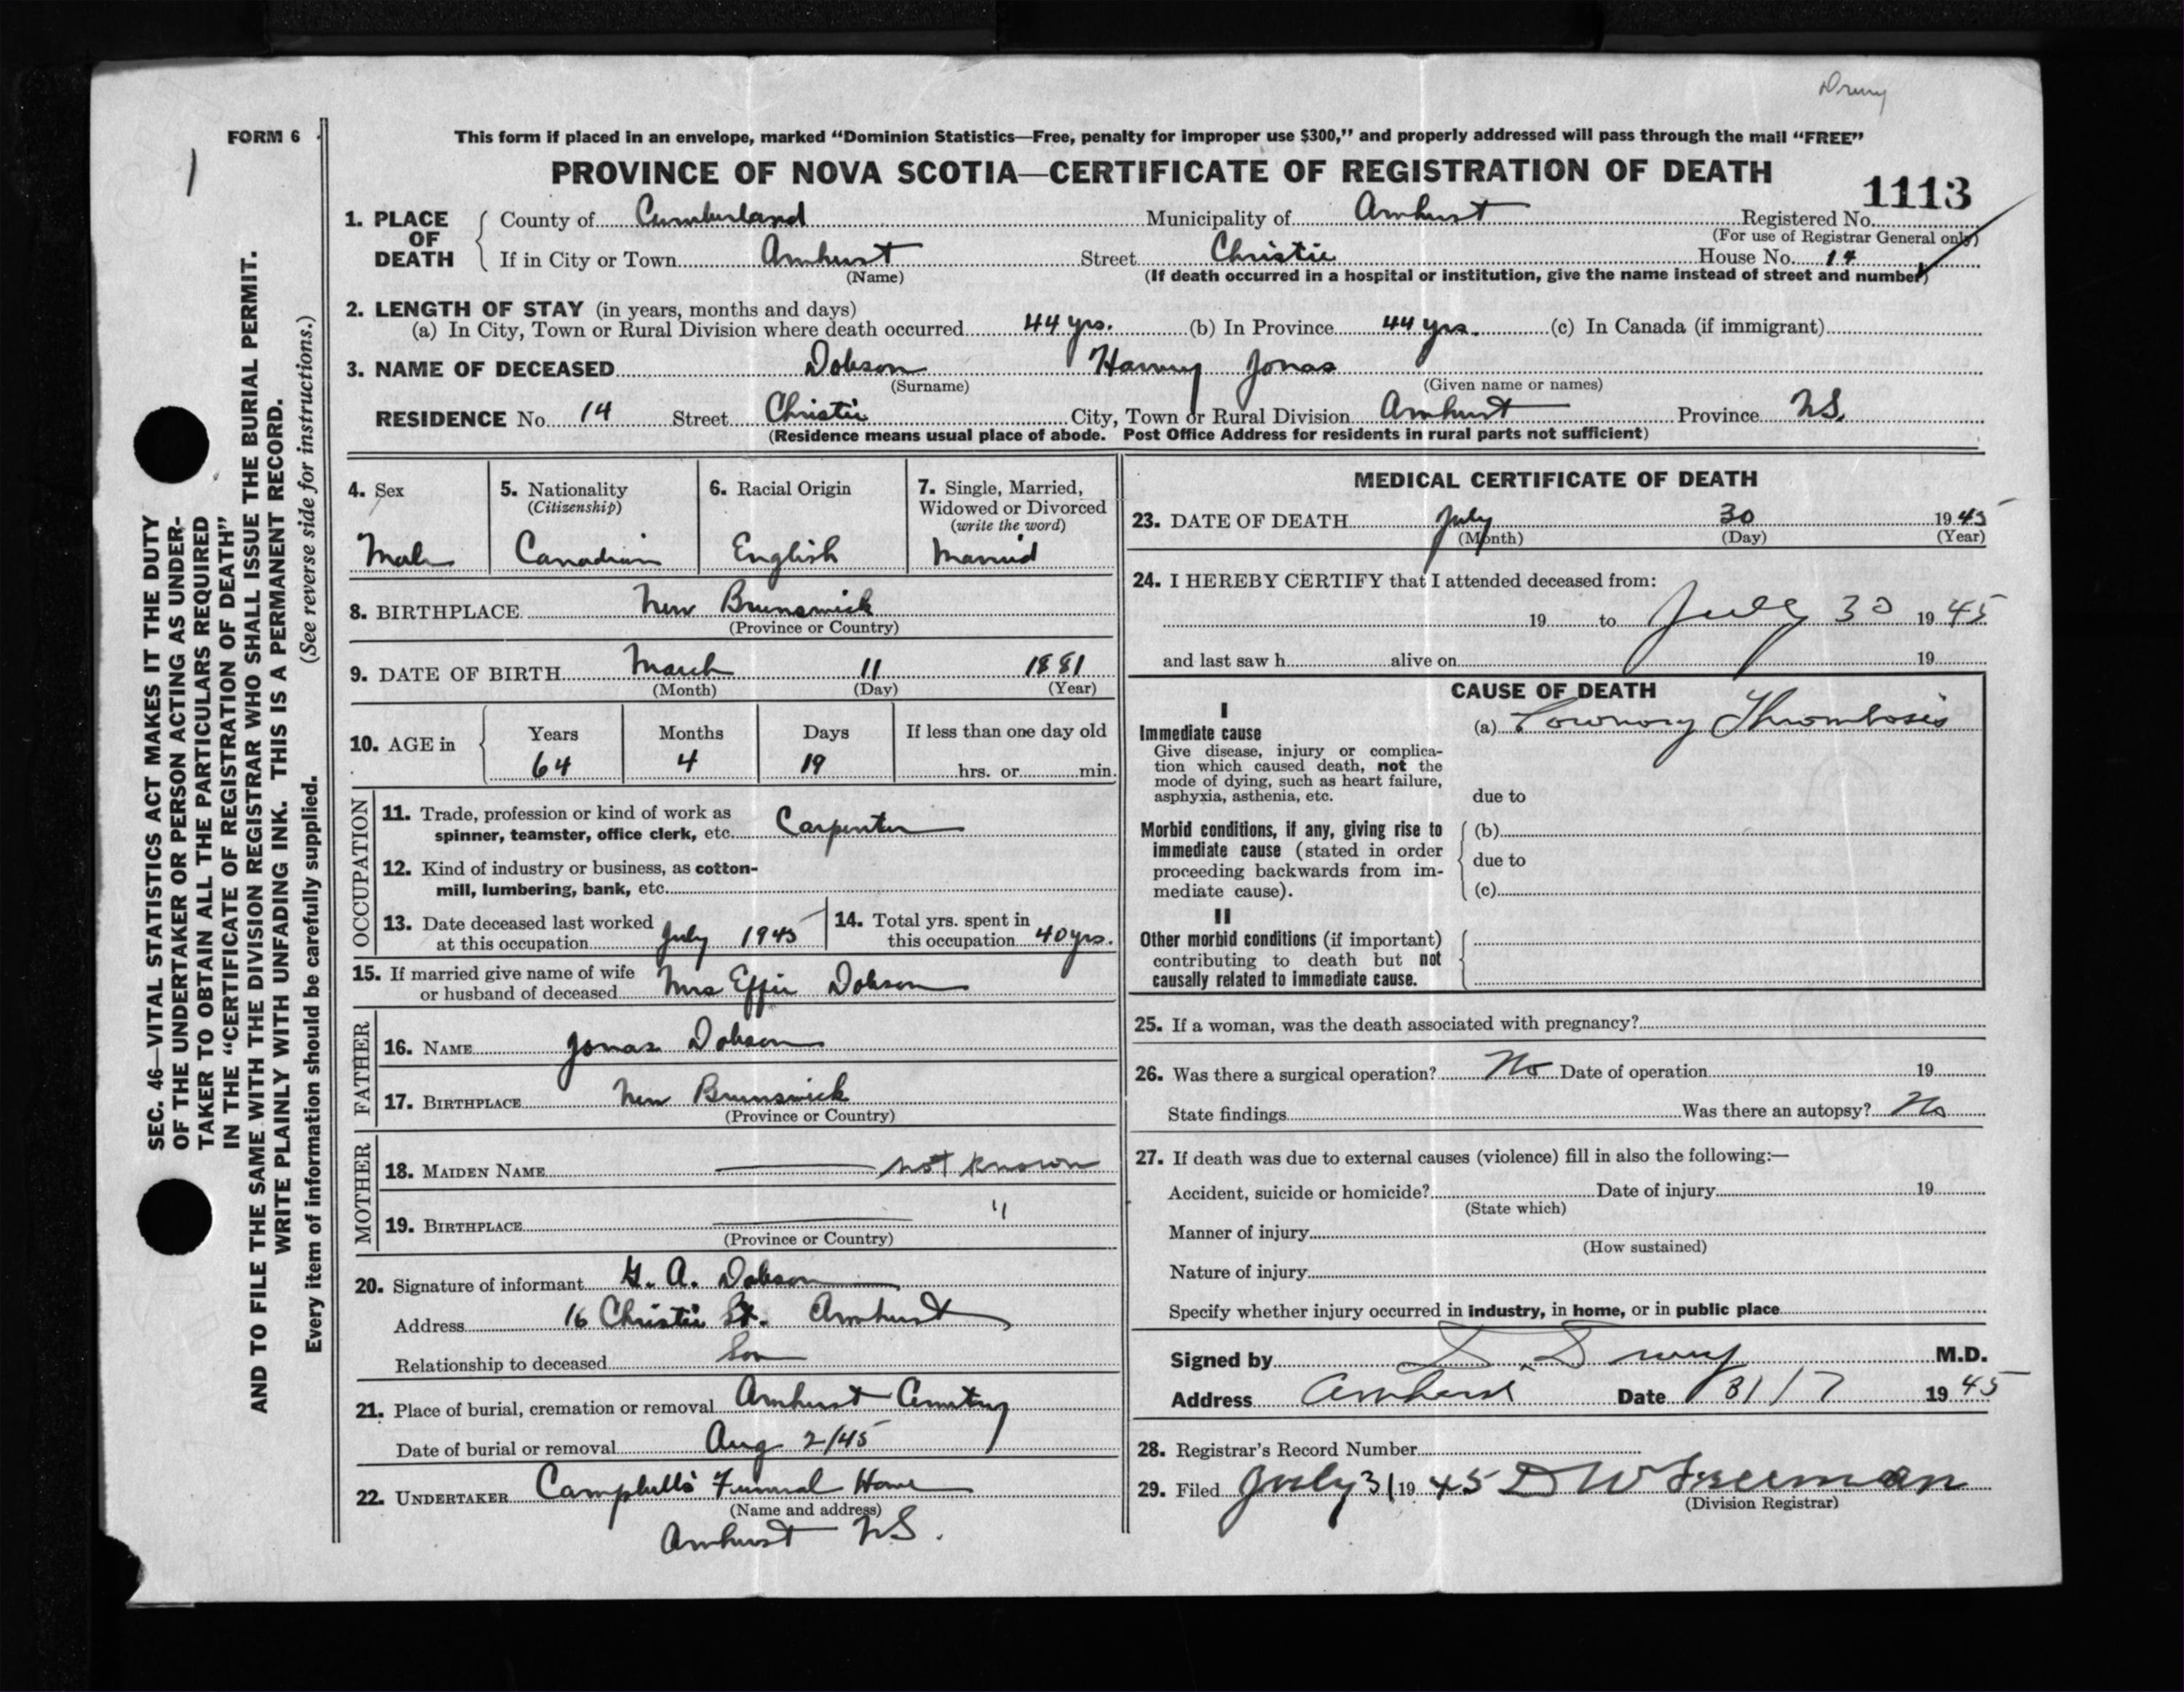 Drury
FORM 6
This form if placed in an envelope, marked “Dominion Statistics—Free, penalty for improper use $300,” and properly addressed will pass through the mail “FREE”
PROVINCE OF NOVA SCOTIA—CERTIFICATE OF REGISTRATION OF DEATH
1113
1. PLACE OF DEATH
County of Cumberland Municipality of Amherst Registered No.
(For use of Registrar General only)
If in City or Town Amherst Street Christie House No. 14
(Name) (If death occurred in a hospital or institution, give the name instead of street and number)
2. LENGTH OF STAY (in years, months and days)
(a) In City, Town or Rural Division where death occurred 44 yrs. (b) In Province 44 yrs. (c) In Canada (if immigrant)
3. NAME OF DECEASED Dobson Harvey Jonas
(Surname) (Given name or names)
RESIDENCE No. 14 Street Christie City, Town or Rural Division Amherst Province N.S.
(Residence means usual place of abode. Post Office Address for residents in rural parts not sufficient)
4. Sex
Male
5. Nationality
(Citizenship)
Canadian
6. Racial Origin
English
7. Single, Married,
Widowed or Divorced
(write the word)
Married
8. BIRTHPLACE New Brunswick
(Province or Country)
9. DATE OF BIRTH March 11 1881
(Month) (Day) (Year)
10. AGE in
Years Months Days If less than one day old
64 4 19 hrs. or min.
OCCUPATION
11. Trade, profession or kind of work as
spinner, teamster, office clerk, etc. Carpenter
12. Kind of industry or business, as cotton-
mill, lumbering, bank, etc.
13. Date deceased last worked
at this occupation July 1945
14. Total yrs. spent in
this occupation 40 yrs.
15. If married give name of wife
or husband of deceased Mrs Effie Dobson
FATHER
16. NAME Jonas Dobson
17. BIRTHPLACE New Brunswick
(Province or Country)
MOTHER
18. MAIDEN NAME not known
19. BIRTHPLACE "
(Province or Country)
20. Signature of informant G. A. Dobson
Address 16 Christie St. Amherst
Relationship to deceased Son
21. Place of burial, cremation or removal Amherst Cemetery
Date of burial or removal Aug 2/45
22. UNDERTAKER Campbells Funeral Home
(Name and address)
Amherst N.S.
MEDICAL CERTIFICATE OF DEATH
23. DATE OF DEATH July 30 1945
(Month) (Day) (Year)
24. I HEREBY CERTIFY that I attended deceased from:
19 to July 30 1945
and last saw h alive on 19
CAUSE OF DEATH
I
Immediate cause
Give disease, injury or complica-
tion which caused death, not the
mode of dying, such as heart failure,
asphyxia, asthenia, etc.
(a) Coronary Thrombosis
due to
Morbid conditions, if any, giving rise to
immediate cause (stated in order
proceeding backwards from im-
mediate cause).
(b)
due to
(c)
II
Other morbid conditions (if important)
contributing to death but not
causally related to immediate cause.
25. If a woman, was the death associated with pregnancy?
26. Was there a surgical operation? No Date of operation 19
State findings Was there an autopsy? No
27. If death was due to external causes (violence) fill in also the following:—
Accident, suicide or homicide? Date of injury 19
(State which)
Manner of injury
(How sustained)
Nature of injury
Specify whether injury occurred in industry, in home, or in public place
Signed by D. Drury M.D.
Address Amherst Date 31/7 1945
28. Registrar's Record Number
29. Filed July 31 1945 D W Freeman
(Division Registrar)
SEC. 46—VITAL STATISTICS ACT MAKES IT THE DUTY
OF THE UNDERTAKER OR PERSON ACTING AS UNDER-
TAKER TO OBTAIN ALL THE PARTICULARS REQUIRED
IN THE “CERTIFICATE OF REGISTRATION OF DEATH”
AND TO FILE THE SAME WITH THE DIVISION REGISTRAR WHO SHALL ISSUE THE BURIAL PERMIT.
WRITE PLAINLY WITH UNFADING INK. THIS IS A PERMANENT RECORD.
Every item of information should be carefully supplied. (See reverse side for instructions.)